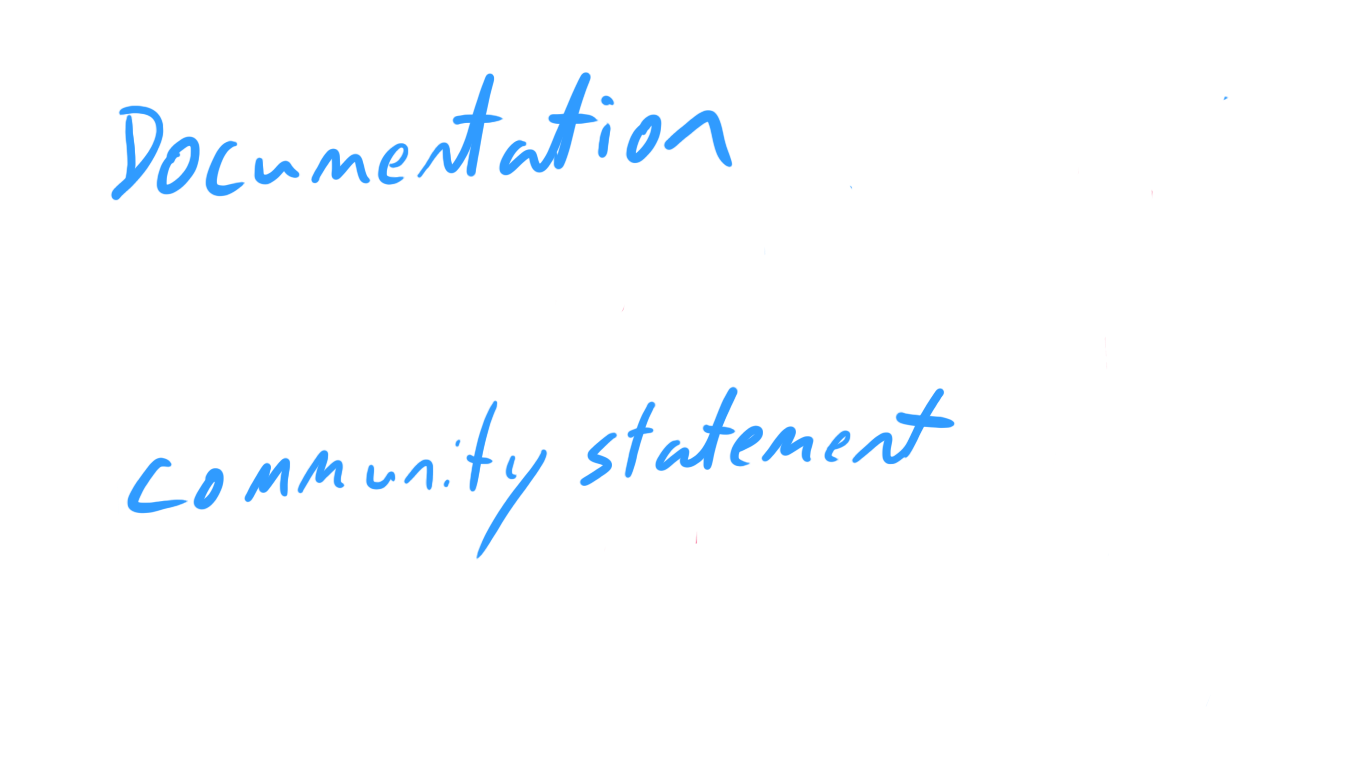 Documentation
community statement